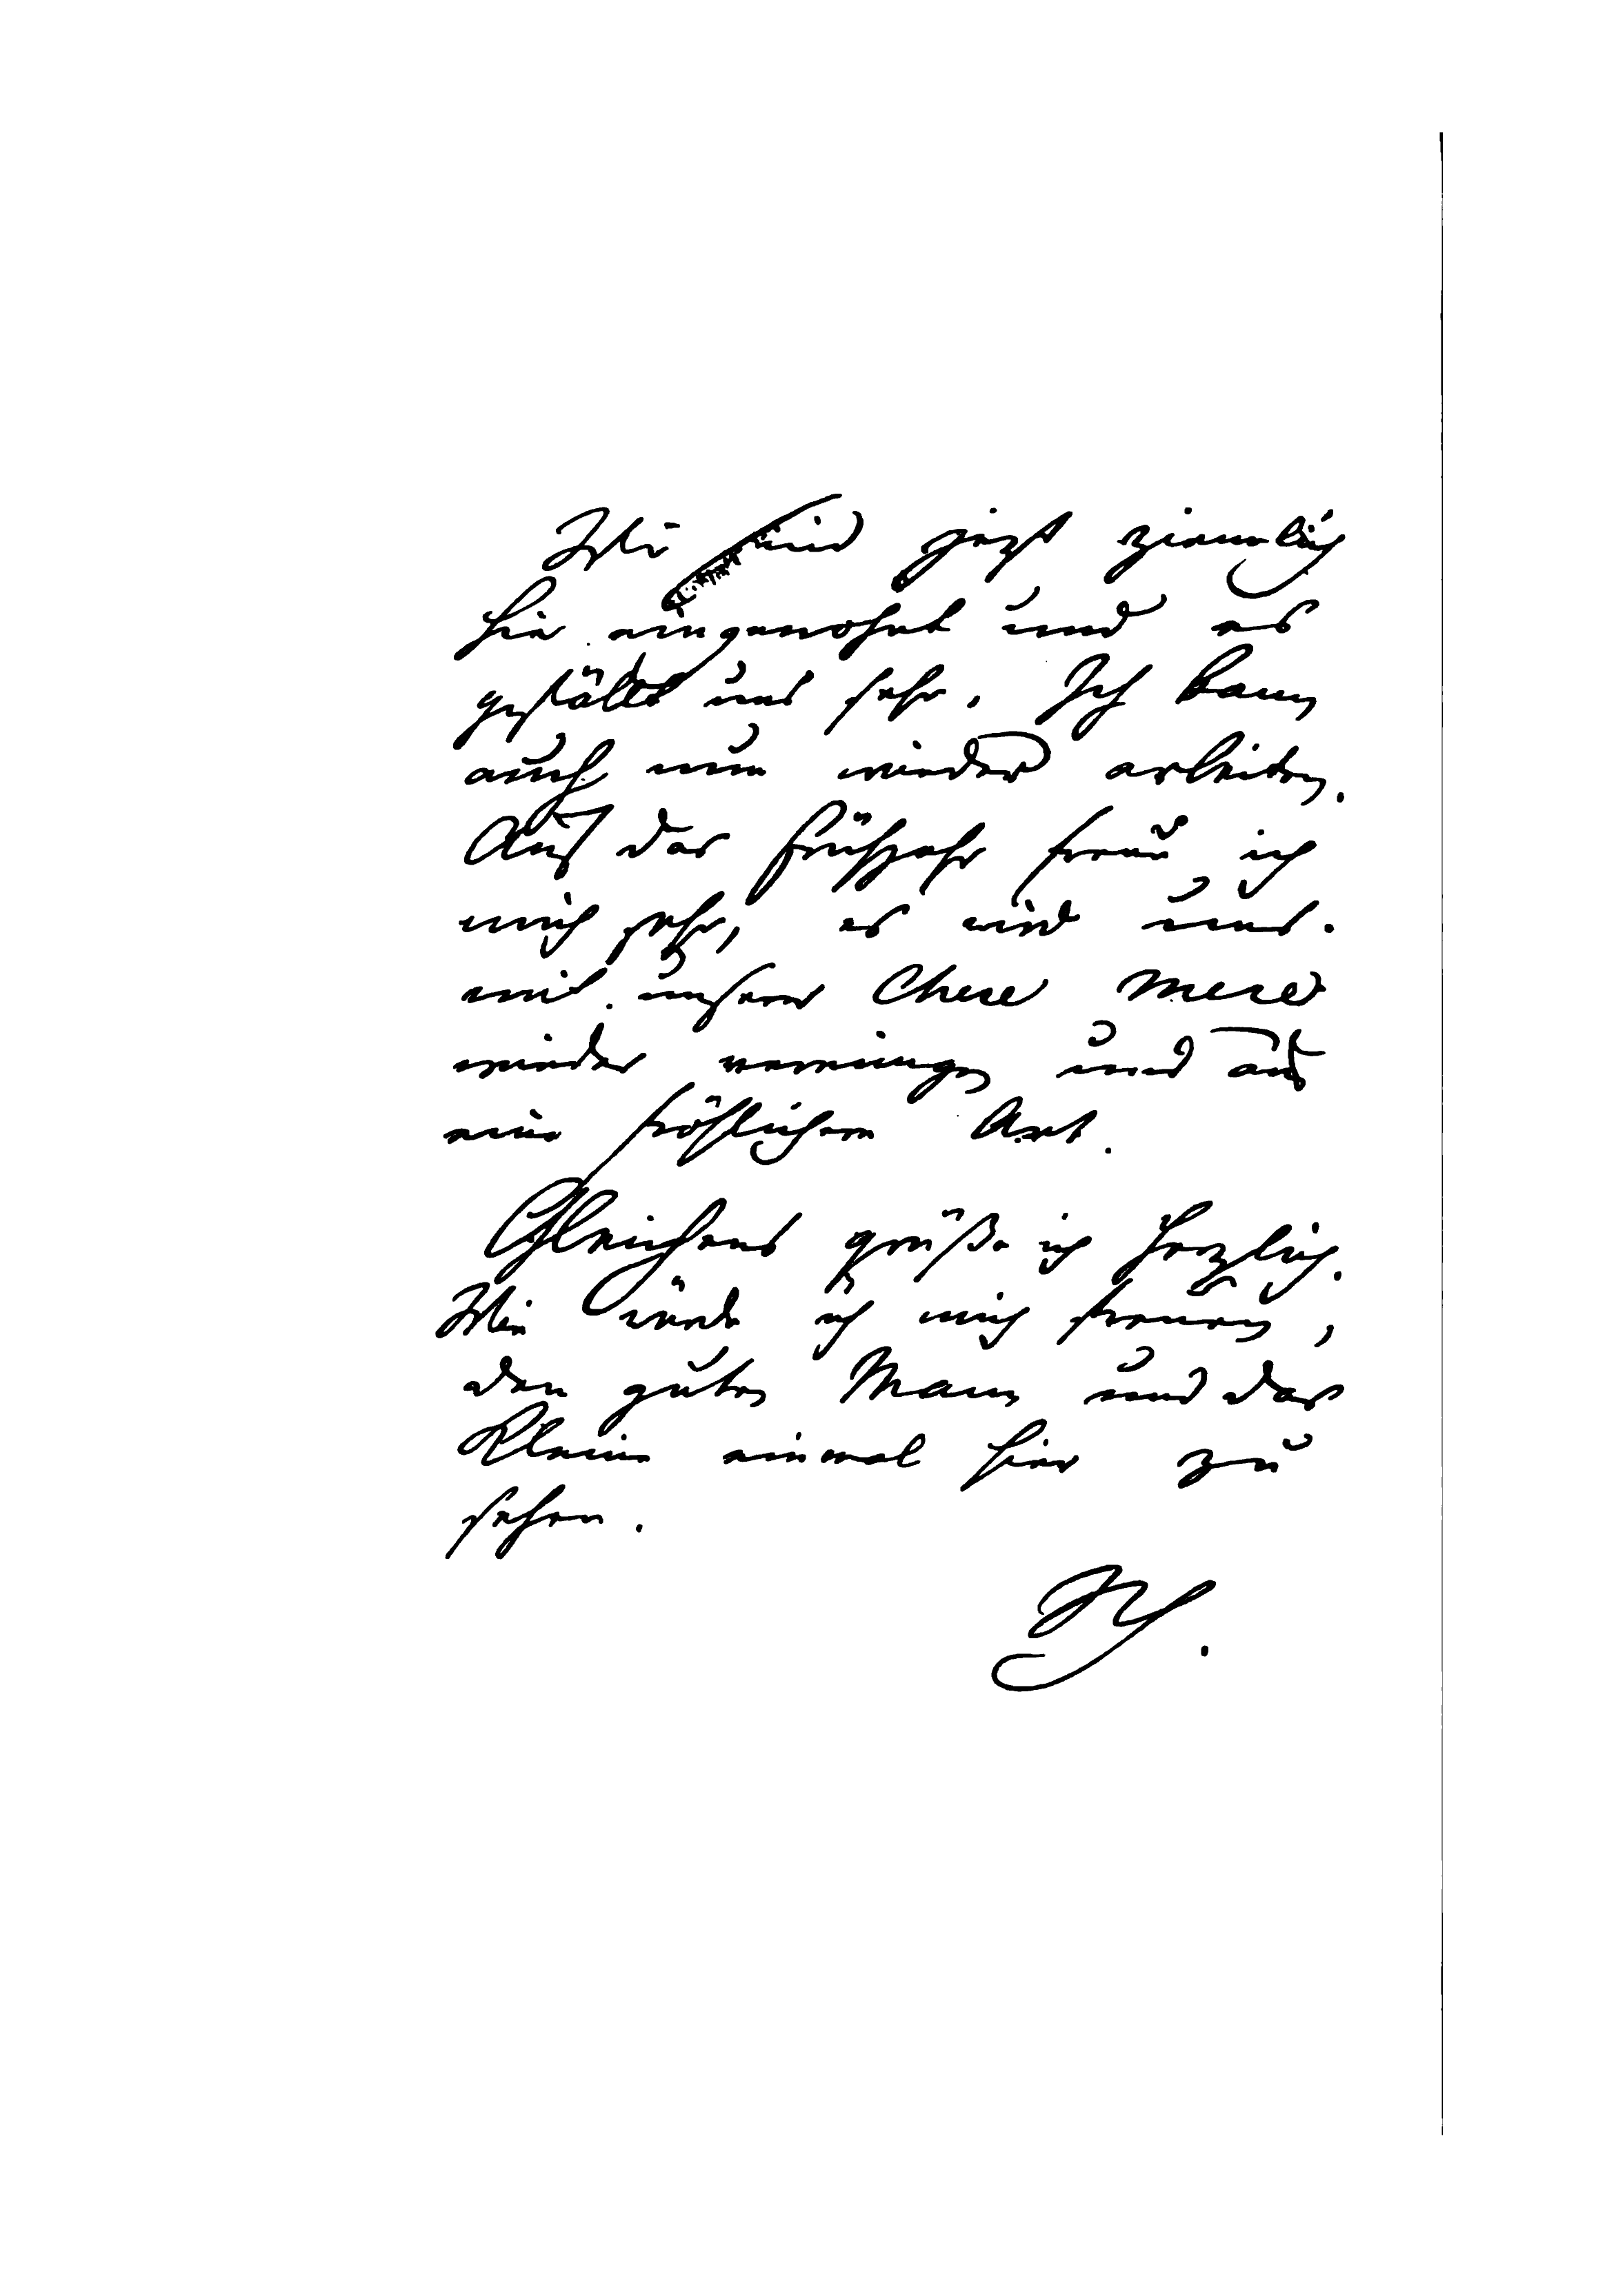 Wir sind jezt ziemlich
hier eingewohnt und es
gefällt uns sehr. Ich kann
auch nun wieder arbeiten.
Auf das Frühjahr freue ich
mich sehr, es wird uns
mit unsrer Chere Mere
wieder vereinigen und auf
eine fröhlichere Art.
Gleichens grüße ich herzlich.
Wie würde ich mich freuen,
den guten Mann und das
Kleine einmal hier zu
sehen.